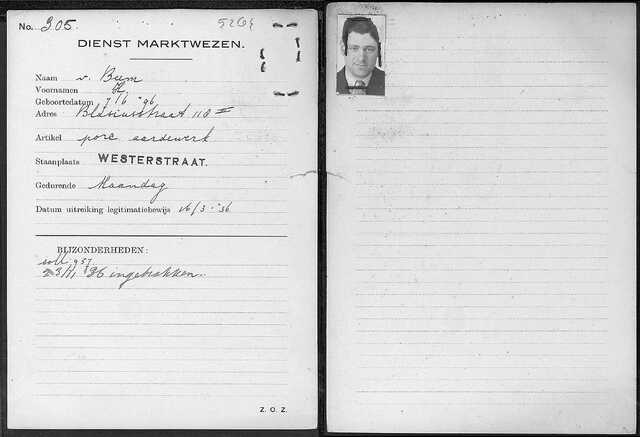 No. 305.
5264
DIENST MARKTWEZEN.
Naam v. Beem
Voornamen
Geboortedatum 7/6 - 96
Adres Blasiusstraat 118 II
Artikel porc aardewerk
Staanplaats WESTERSTRAAT.
Gedurende Maandag
Datum uitreiking legitimatiebewijs 26/3 - '36
BIJZONDERHEDEN:
957
23/11 '36 ingetrokken.
Z. O. Z.